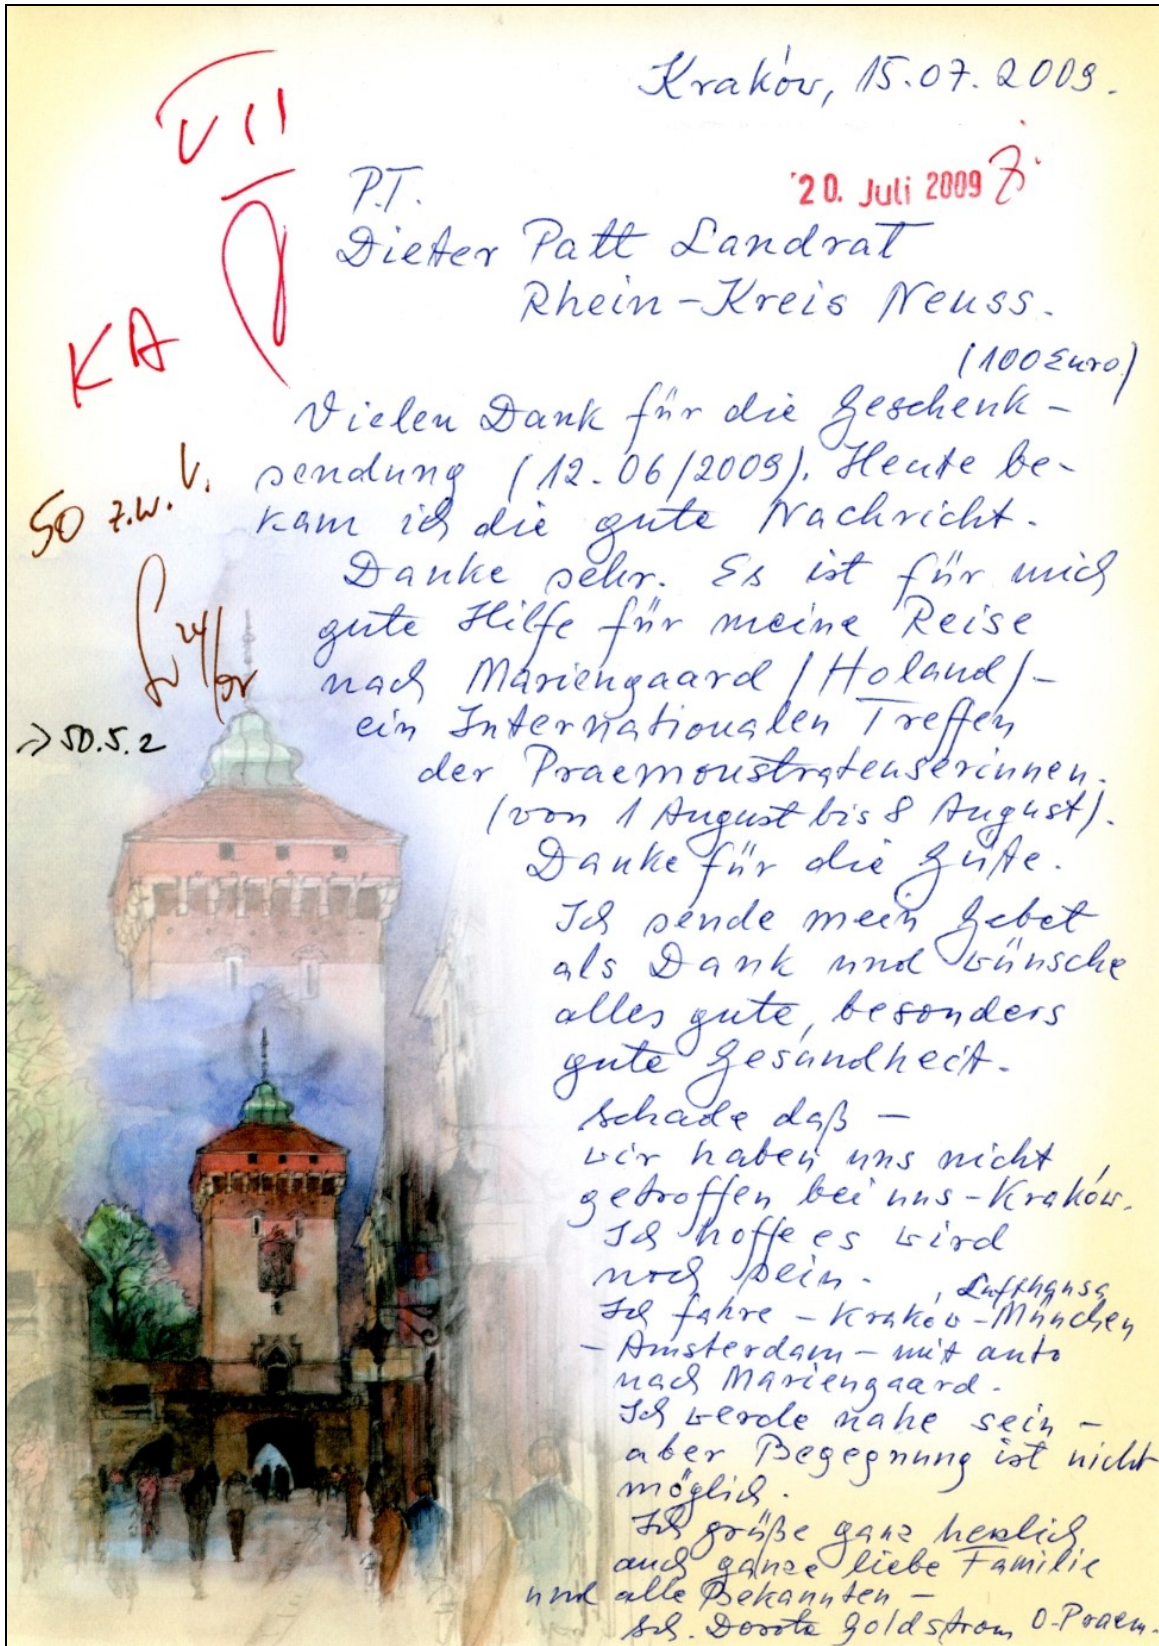 Kraków, 15.07.2009.
VII
20. Juli 2009
P.T.
Dieter Patt Landrat
Rhein-Kreis Neuss.
KA
(100 Euro)
Vielen Dank für die Geschenk-
sendung (12.06/2009). Heute be-
kam ich die gute Nachricht.
50 z.w.V.
Danke sehr. Es ist für mich
gute Hilfe für meine Reise
nach Mariengaard /Holand/-
ein Internationalen Treffen
→ 50.5.2
der Praemonstratenserinnen.
(von 1 August bis 8 August).
Danke für die Güte.
Ich sende mein Gebet
als Dank und wünsche
alles gute, besonders
gute Gesundheit.
Schade daß –
wir haben uns nicht
getroffen bei uns – Kraków.
Ich hoffe es wird
noch sein.
, Lufthansa
Ich fahre – Kraków – München
– Amsterdam – mit auto
nach Mariengaard.
Ich werde nahe sein –
aber Begegnung ist nicht
möglich.
Ich grüße ganz herzlich
auch ganze liebe Familie
und alle Bekannten –
Sch. Dorota Goldstrom O-Praem.